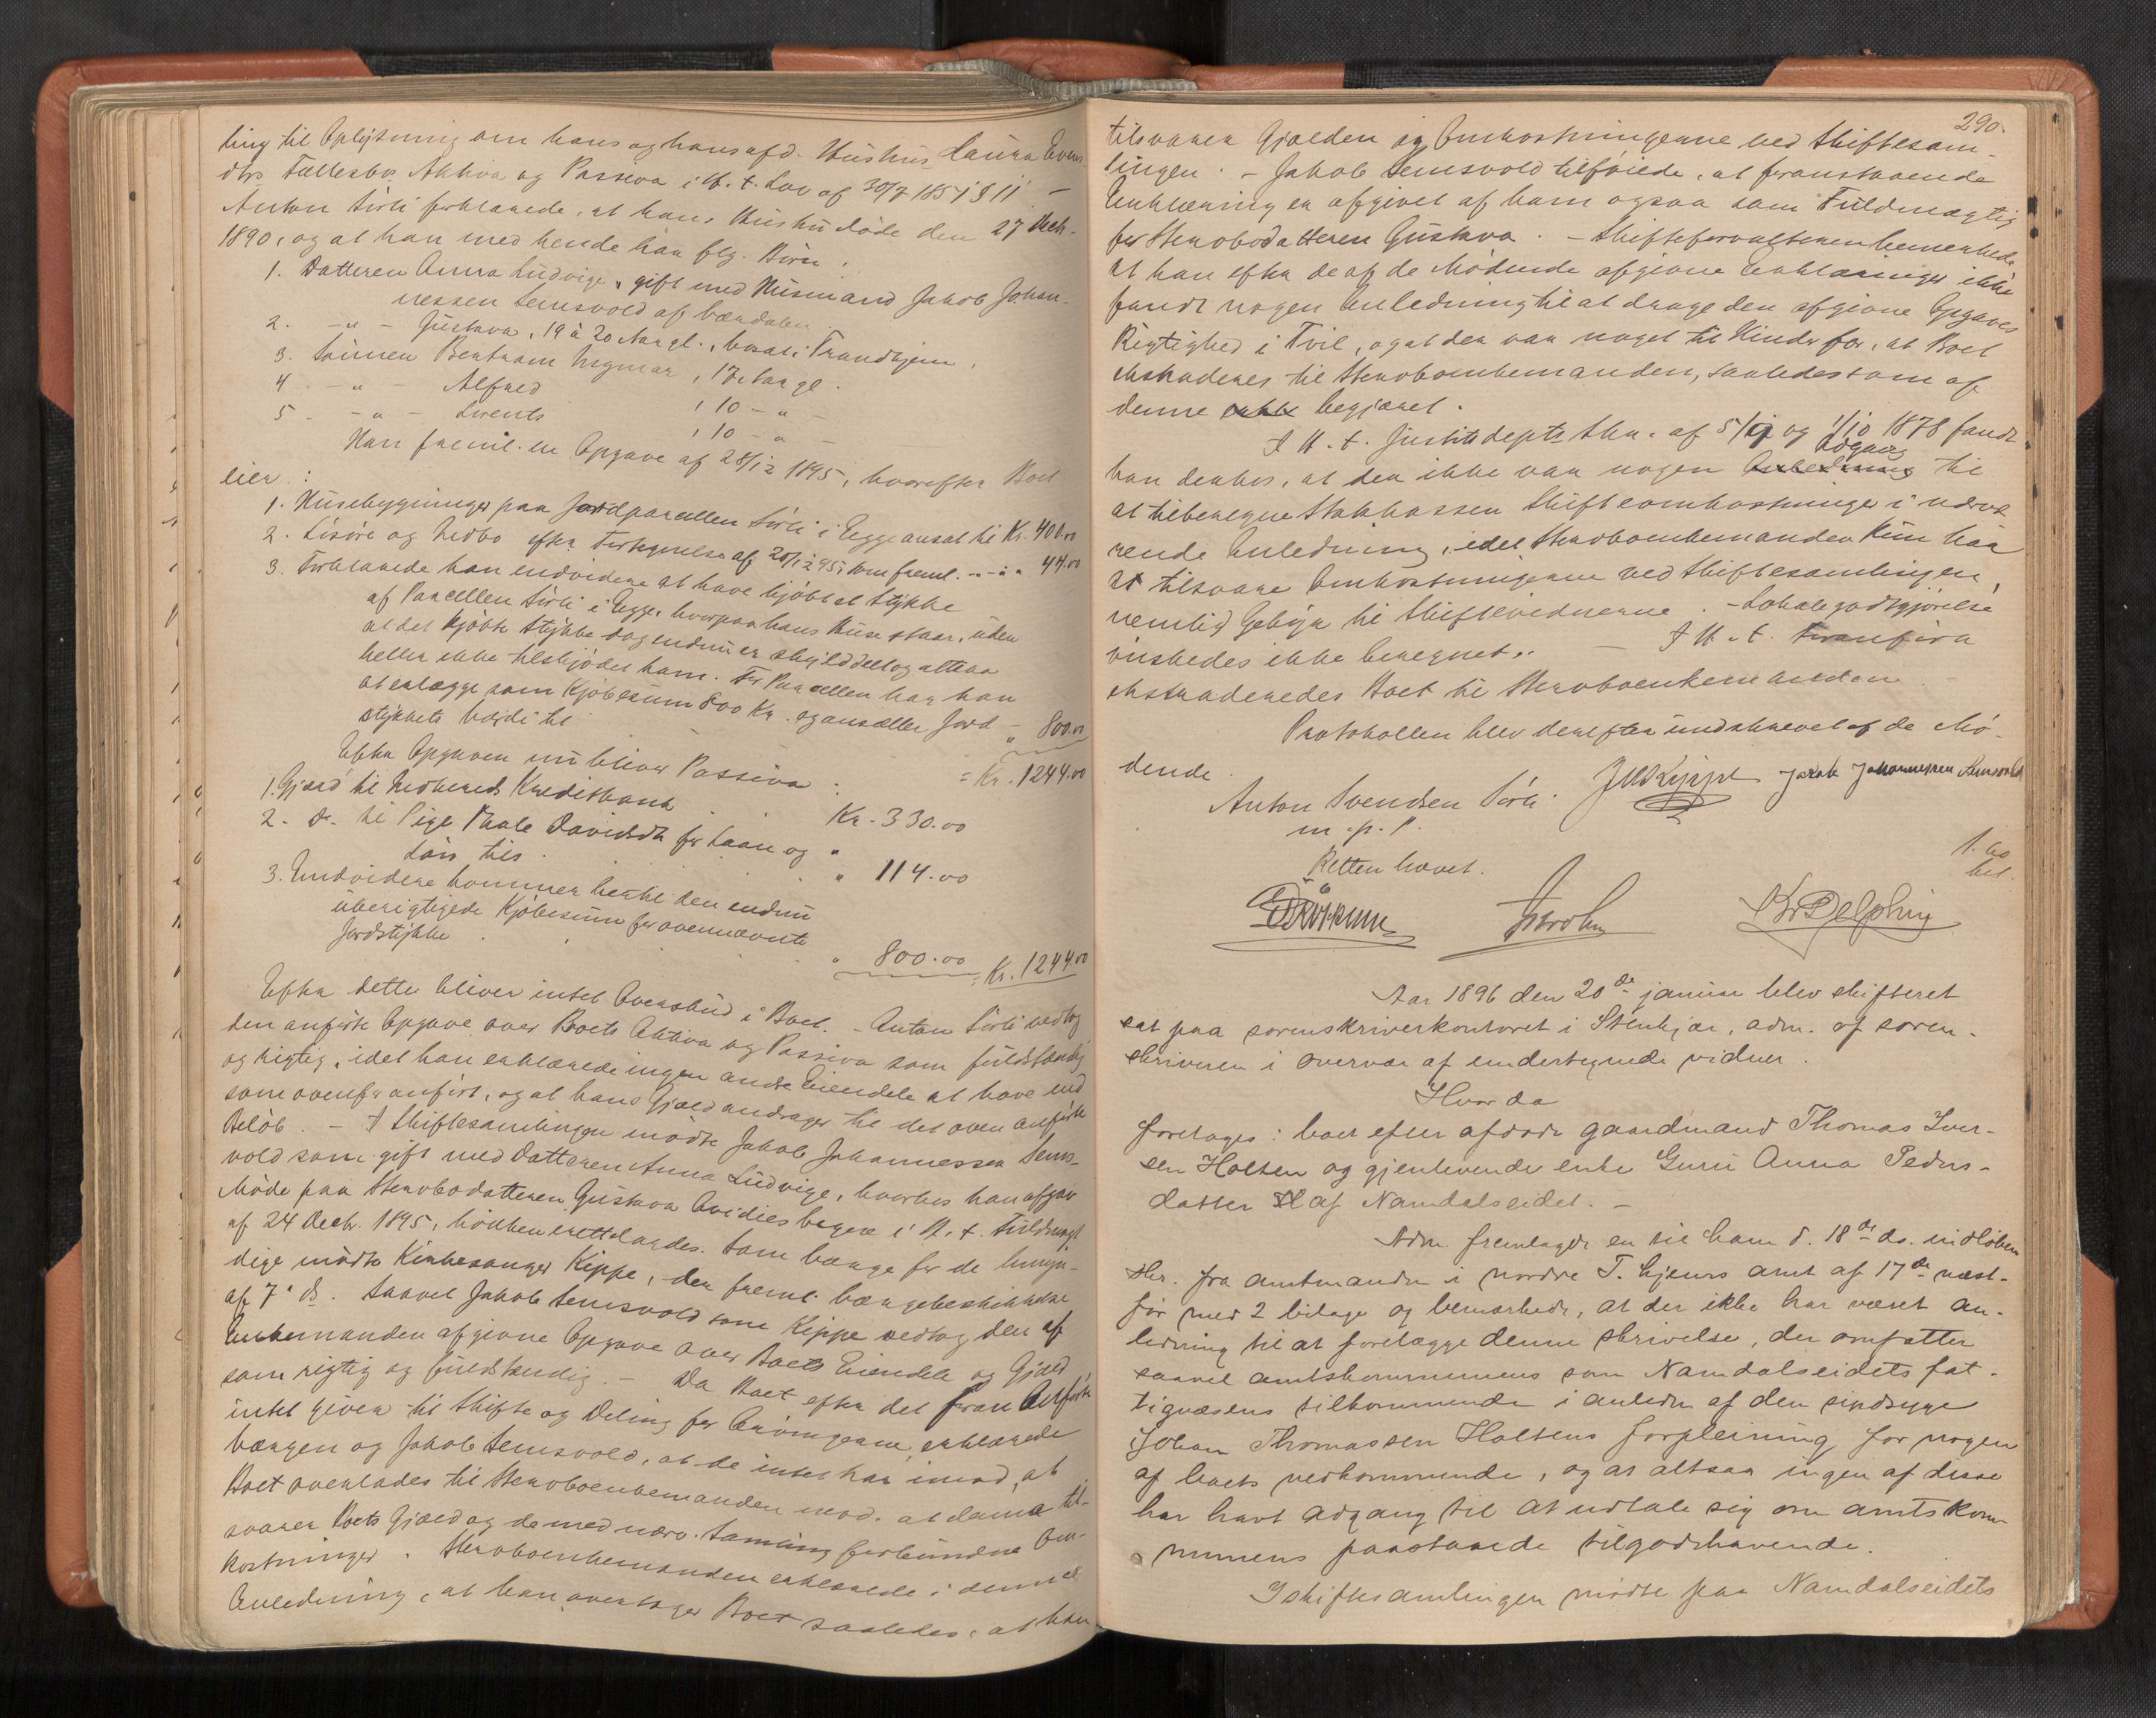 ling til Oplysning om hans og hans afd. Hustrus Laura Evens
dtrs Fællesbos Aktiva og Passiva i H. t. Lov af 30/7 1851 § 11. —
Anton Sirli forklarede, at hans Hustru døde den 27 Decb.
1890, og at han med hende har flg. Børn:
1. Datteren Anna Ludvige, gift med Husmand Jakob Johan-
nessen Semsvold af Værdalen
2. -"- Gustava, 19 à 20 Aar gl., bosat i Trondhjem,
3. Sønnen Bertram Ingmar, 17 Aar gl.
4 -"- Alfred , 10 -"-
5 -"- Lorents , 10 -"-
Han freml. en Opgave af 28/12 1895, hvorefter Boet
eier:
1. Husebygninger paa Jordparcellen Sirli i Egge ansat til Kr. 400.00
2. Løsøre og Indbo efter Fortegnelse af 20/12 95, som freml. -"-"- 44.00
3. Forklarede han endvidere at have kjøbt et Stykke
af Parcellen Sirli i Egge, hvorpaa hans Huse staar, uden
at det kjøbte Stykke dog endnu er skylddelt og altsaa
heller ikke tilskjødet ham. For Parcellen har han
at erlægge som Kjøbesum 800 Kr. og ansætter Jord-
stykkets Værdi til " 800.00
= Kr. 1244.00
Efter Opgaven nu bliver Passiva:
1. Gjæld til Inderøens Kreditbank Kr. 330.00
2. Do. til Pige Paale Davidsdtr for Laan og "
Løn tils. " 114.00
3. Endvidere kommer hertil den endnu
uberigtigede Kjøbesum for ovennævnte
Jordstykke " 800.00 = Kr. 1244.00
Efter dette bliver intet Overskud i Boet. - Anton Sirli vedtog
den anførte Opgave over Boets Aktiva og Passiva som fuldstændig
og rigtig, idet han erklærede ingen andre Eiendele at have end
som ovenfor anført, og at hans Gjæld andrager til det oven anførte
Beløb. - I Skiftesamlingen mødte Jakob Johannessen Sems-
vold som gift med Datteren Anna Ludvige, hvorhos han afgav
Møde paa Stervbodatteren Gustava Ovidies Vegne i H. t. Fuldmagt
af 24 Decbr. 1895, hvilken Som Værge for de Umyn-
dige mødte Kirkesanger Kippe, der freml. Værgebeskikkelse
af 7' ds. Saavel Jakob Semsvold som Kippe vedtog den af
Enkemanden afgivne Opgave over Boets Eiendele og Gjæld
som rigtig og fuldstændig. - Da Boet efter det foran Anførte
intet giver til Skifte og Deling for Arvingerne, erklærede
Værgen og Jakob Semsvold, at de intet har imod, at
Boet overlades til Stervboenkemanden mod, at denne til-
svarer Boets Gjæld og de med nærv. Samling forbundne Om-
kostninger. Stervboenkemanden erklærede i denne
Anledning, at han overtager Boet saaledes, at han
290.
tilsvarer Gjælden og Omkostningerne ved Skiftesam-
lingen. - Jakob Semsvold tilføiede, at foranstaaende
Erklæring er afgivet af ham ogsaa som Fuldmægtig
for Stervbodatteren Gustava. - Skifteforvalteren bemerkede
at han efter de af de Mødende afgivne Erklæringer ikke
fandt nogen Anledning til at drage den afgivne Opgaves
Rigtighed i Tvil, og at der var noget til Hinder for, at Boet
ekstraderes til Stervboenkemanden, saaledes som af
denne begjæret.
I H. t. Justitsdepts Skr. af 5/9 og 1/10 1878 fandt
Adgang
han derhos, at der ikke var nogen Anledning til
at tilberegne Statskassen Skifteomkostninger i nærvæ-
rende Anledning, idet Stervboenkemanden kun har
at tilsvare Omkostningerne ved Skiftesamlingen,
nemlig Gebyr til Skiftevidnerne. - Lokalegodtgjørelse
ønskedes ikke beregnet. - I H. t. Foranførte
ekstraderedes Boet til Stervboenkemanden.
Protokollen blev derefter underskrevet af de Mø-
dende.
Anton Svendsen Sirli JMKippe Jakob Johannessen Semsvold
m. p. P.
Retten hævet.
Kr Delphin
Aar 1896 den 20de januar blev skifteret
sat paa sorenskriverkontoret i Stenkjær, adm. af soren-
skriveren i overvær af undertegnede vidner.
Hvor da
foretoges: boet efter afdøde gaardmand Thomas Iver-
sen Holten og gjenlevende enke Guru Anna Peders-
datter af Namdalseidet. -
Adm. fremlagde en til ham d. 18de ds. indløben
skr. fra amtmanden i nordre T.hjems amt af 17de næst-
før med 2 bilage og bemærkede, at der ikke har været an-
ledning til at forelægge denne skrivelse, der omfatter
saavel amtskommunens som Namdalseidets fat-
tigvæsens tilkommende i anledn. af den sindssyge
Johan Thomassen Holtens forpleining for nogen
af boets vedkommende, og at altsaa ingen af disse
har havt adgang til at udtale sig om amtskom-
munens paastaaede tilgodehavende.
I skiftesamlingen mødte paa Namdalseidets